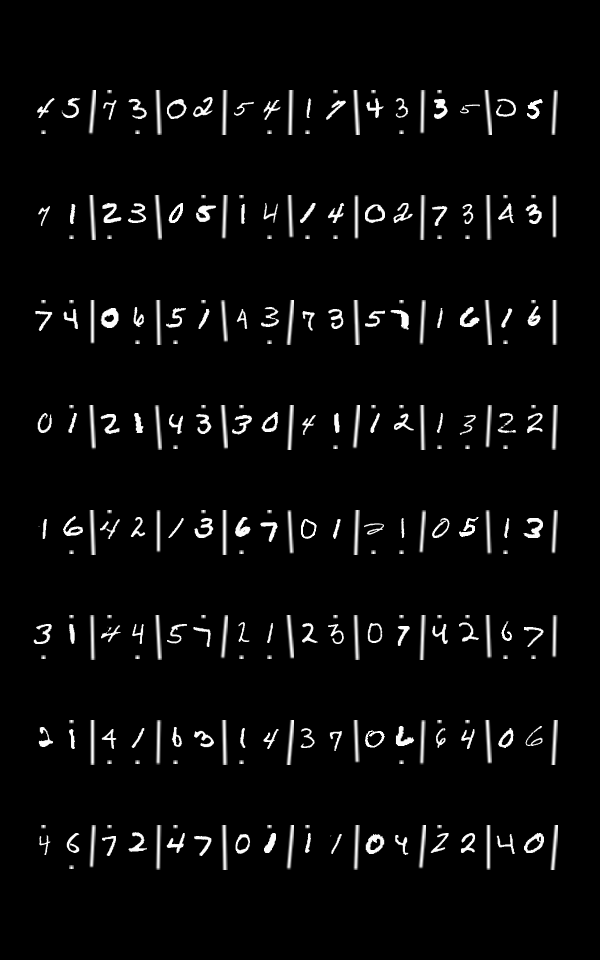 4 5 | 7 3 | 0 2 | 5 4 | 1 7 | 4 3 | 3 5 | 0 5 |
7 1 | 2 3 | 0 5 | 1 4 | 1 4 | 0 2 | 7 3 | 4 3 |
7 4 | 0 6 | 5 1 | 4 3 | 7 3 | 5 7 | 1 6 | 1 6 |
0 1 | 2 1 | 4 3 | 3 0 | 4 1 | 1 2 | 1 3 | 2 2 |
1 6 | 4 2 | 1 3 | 6 7 | 0 1 | 2 1 | 0 5 | 1 3 |
3 1 | 4 4 | 5 7 | 2 1 | 2 3 | 0 7 | 4 2 | 6 7 |
2 1 | 4 1 | 6 3 | 1 4 | 3 7 | 0 6 | 6 4 | 0 6 |
4 6 | 7 2 | 4 7 | 0 1 | 1 1 | 0 4 | 2 2 | 4 0 |